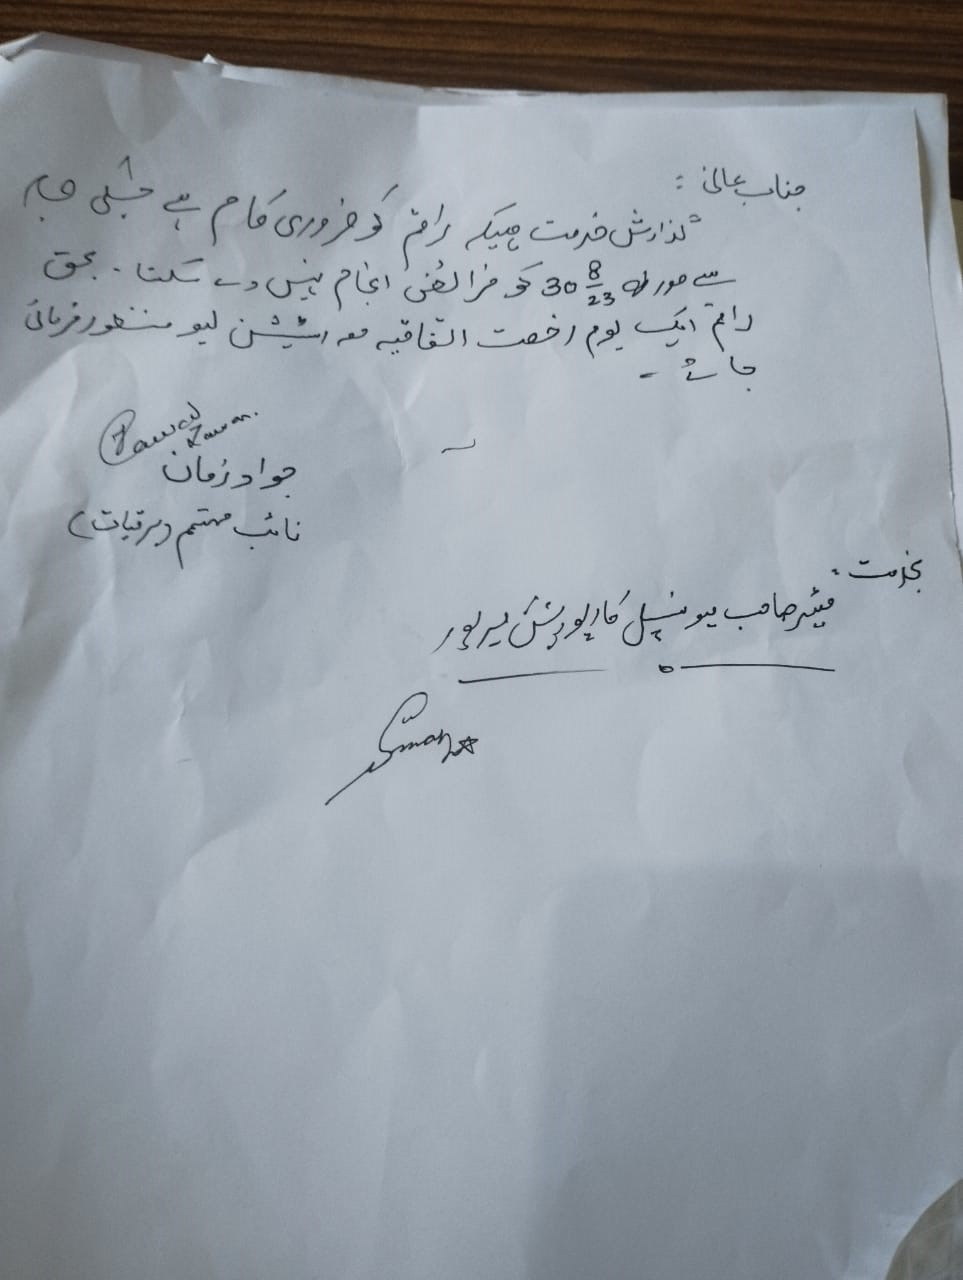 جناب عالی :
گذارش خدمت ہیکہ راقم کو ضروری کام ہے جسکی وجہ
سے مورخہ 30 8/23 کو فرائض انجام نہیں دے سکتا ۔ بحق
راقم ایک یوم رخصت اتفاقیہ معہ اسٹیشن لیو منظور فرمائی
جائے ۔
Jawad Zaman.
جواد زمان
نائب مہتمم (برقیات)
بخدمت :
میئر صاحب میونسپل کارپوریشن میرپور